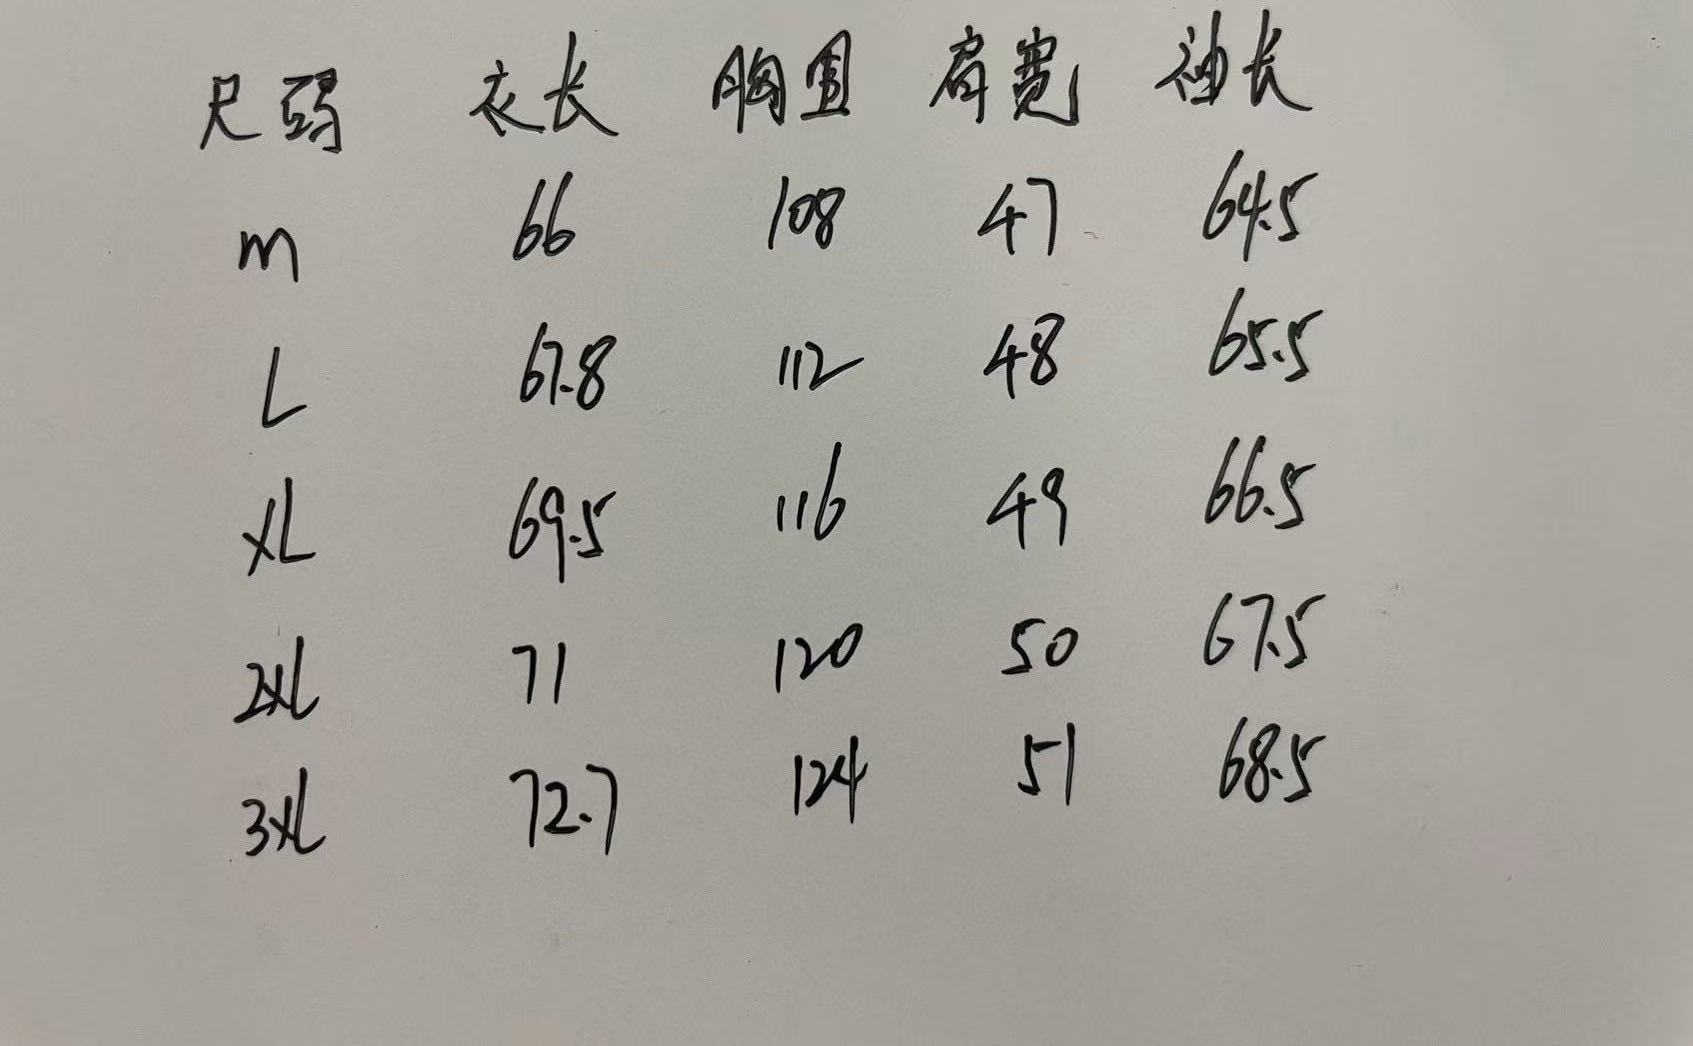 尺码 衣长 胸围 肩宽 袖长
m 66 108 47 64.5
L 67.8 112 48 65.5
XL 69.5 116 49 66.5
2XL 71 120 50 67.5
3XL 72.7 124 51 68.5